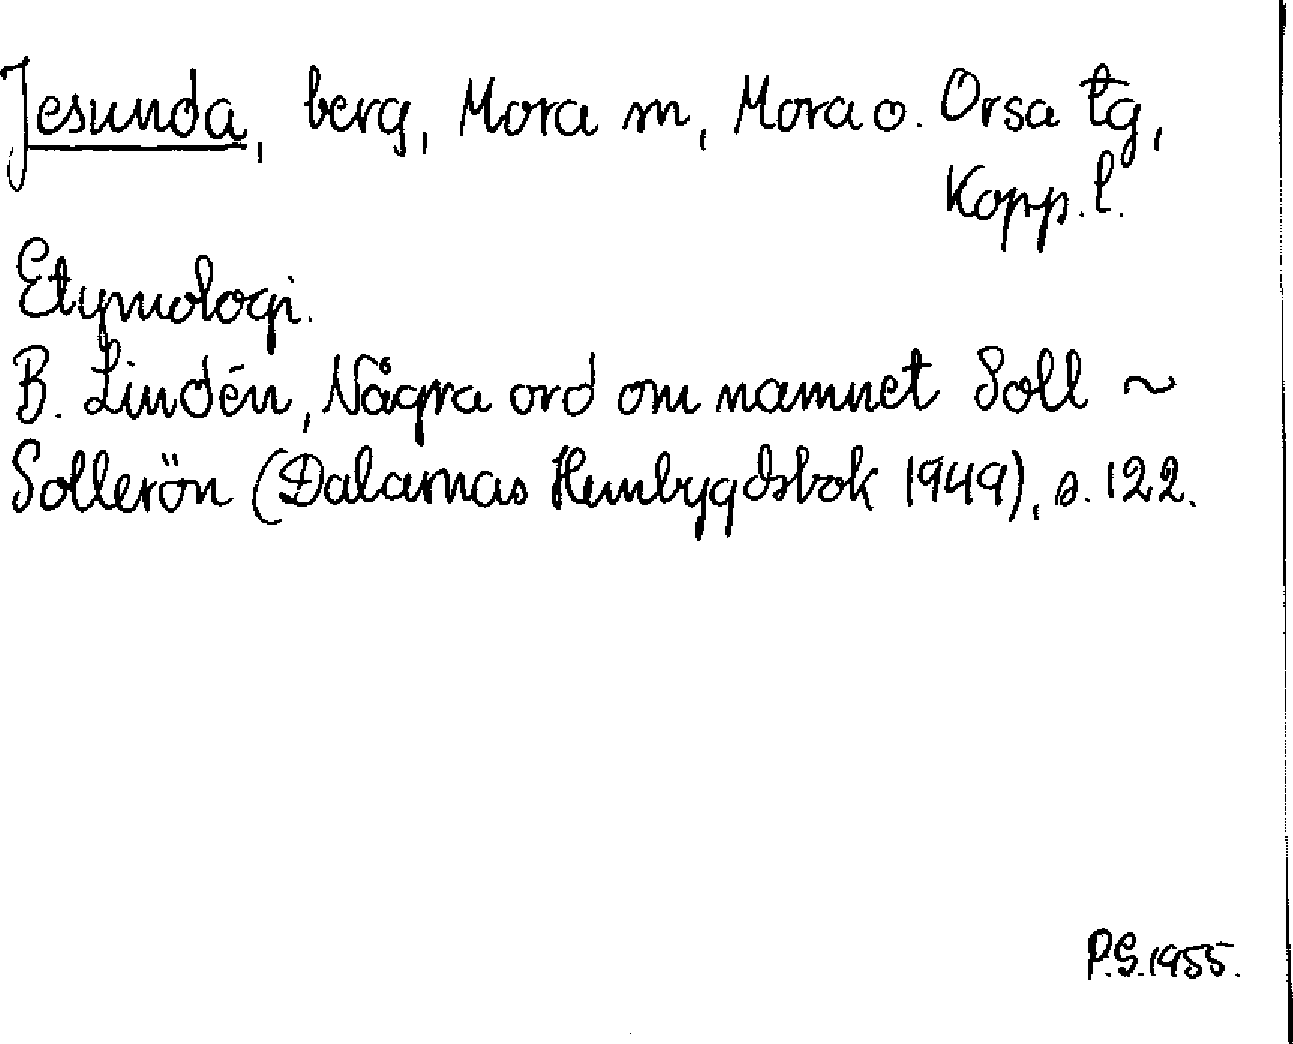 Jesunda, berg, Mora m, Mora o. Orsa tg,
Kopp. l.
Etymologi.
B. Lindén, Några ord om namnet Soll ~
Sollerön (Dalarnas Hembygdsbok 1949), s. 122.
P.S. 1955.